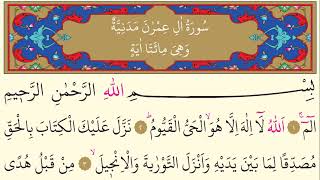 سُورَةُ اٰلِ عِمْرٰنَ مَدَنِيَّةٌ
وَهِيَ مِائَتَا اٰيَةٍ
بِسْمِ اللّٰهِ الرَّحْمٰنِ الرَّحِيمِ
الٓمٓ ۙ ﴿١﴾ اَللّٰهُ لَٓا اِلٰهَ اِلَّا هُوَۙ الْحَيُّ الْقَيُّومُۜ ﴿٢﴾ نَزَّلَ عَلَيْكَ الْكِتَابَ بِالْحَقِّ
مُصَدِّقًا لِمَا بَيْنَ يَدَيْهِ وَاَنْزَلَ التَّوْرٰيةَ وَالْاِنْجِيلَۙ ﴿٣﴾ مِنْ قَبْلُ هُدًى